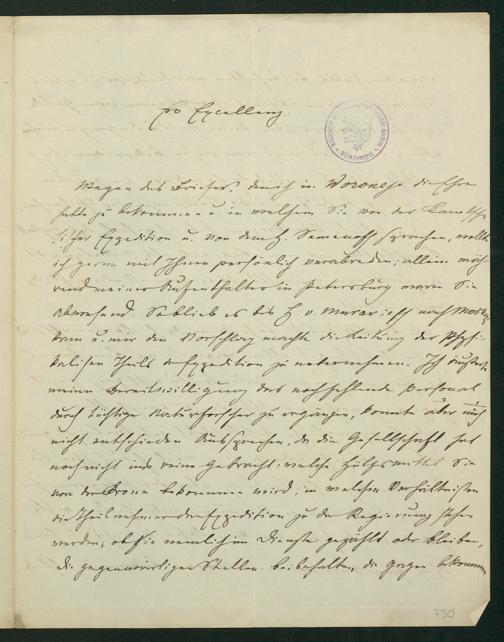 Ew Excellenz.
Wegen des Briefes den ich in Woronesh die Ehre
hatte zu bekommen u. in welchem Sie von der Kamtscha-
tischer Expedition u. von dem H. Semenoff sprachen, wollte
ich gerne mit Ihnen persönlich verabreden; allein wäh-
rend meiner Aufenthaltes in Petersburg waren Sie
abwesend. So blieb es bis H. v. Murawieff nach Moskau
kam u. mir den Vorschlag machte die Leitung der Physi-
kalischen Theils der Expedition zu übernehmen. Ich äusserte
meinen Bereitwilligung das noch fehlende Personal
durch tüchtige Naturforscher zu ergänzen, konnte aber mich
nicht entschieden aussprechen, da die Gesellschaft hat
noch nicht ins reine gebracht: welche Hülfsmittel Sie
von der Krone bekommen wird, in welchen Verhältnissen
die Theilnehmer der Expedition zu der Regierung stehen
werden, ob sie nemlich im Dienste gezählt oder bleiben,
die gegenwärtigen Stellen beibehalten, die Gagen bekommen
730